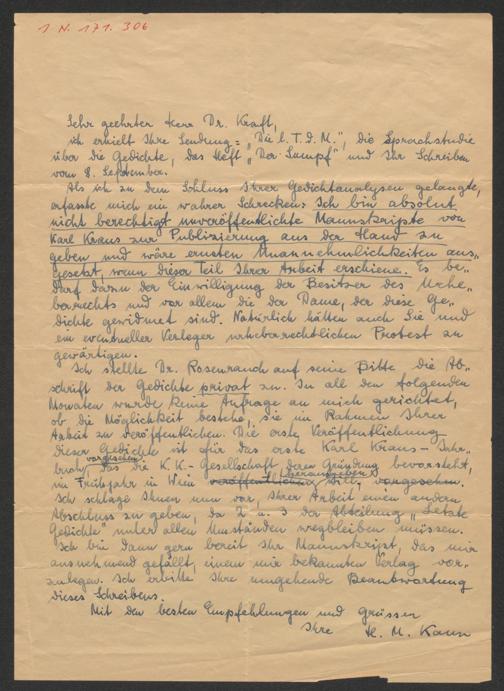 1 N. 171. 306
Sehr geehrter Herr Dr. Kraft,
ich erhielt Ihre Sendung: „Die l. T. d. M.", die Sprachstudie
über die Gedichte, das Heft „Der Sumpf" und Ihr Schreiben
vom 8. September.
Als ich zu dem Schluss Ihrer Gedichtanalysen gelangte,
erfasste mich ein wahrer Schrecken: Ich bin absolut
nicht berechtigt unveröffentlichte Mannskripte von
Karl Kraus zur Publizierung aus der Hand zu
geben und wäre ernsten Unannehmlichkeiten aus=
gesetzt, wenn dieser Teil Ihrer Arbeit erschiene. Es be=
darf dazu der Einwilligung der Besitzer des Urhe=
berrechts und vor allem die der Dame, der diese Ge=
dichte gewidmet sind. Natürlich hätten auch Sie und
ein eventueller Verleger urheberrechtlichen Protest zu
gewärtigen.
Ich stellte Dr. Rosenrauch auf seine Bitte, die Ab=
schrift der Gedichte privat zu. In all den folgenden
Monaten wurde keine Anfrage an mich gerichtet,
ob die Möglichkeit bestehe, sie im Rahmen Ihrer
Arbeit zu veröffentlichen. Die erste Veröffentlichung
dieser Gedichte ist für das erste Karl Kraus-Jahr=
buch vorgesehen, das die K.K.-Gesellschaft, deren Gründung bevorsteht,
im Frühjahr in Wien veröffentlichen herausgeben will, vorgesehen.
Ich schlage Ihnen nun vor, Ihrer Arbeit einen andern
Abschluss zu geben, da 2 u. 3 der Abteilung „Letzte
Gedichte" unter allen Umständen wegbleiben müssen.
Ich bin dann gern bereit Ihr Mannskript, das mir
ausnehmend gefällt, einem mir bekannten Verlag vor=
zulegen. Ich erbitte Ihre umgehende Beantwortung
dieses Schreibens.
Mit den besten Empfehlungen und Grüssen
Ihre H. M. Kann